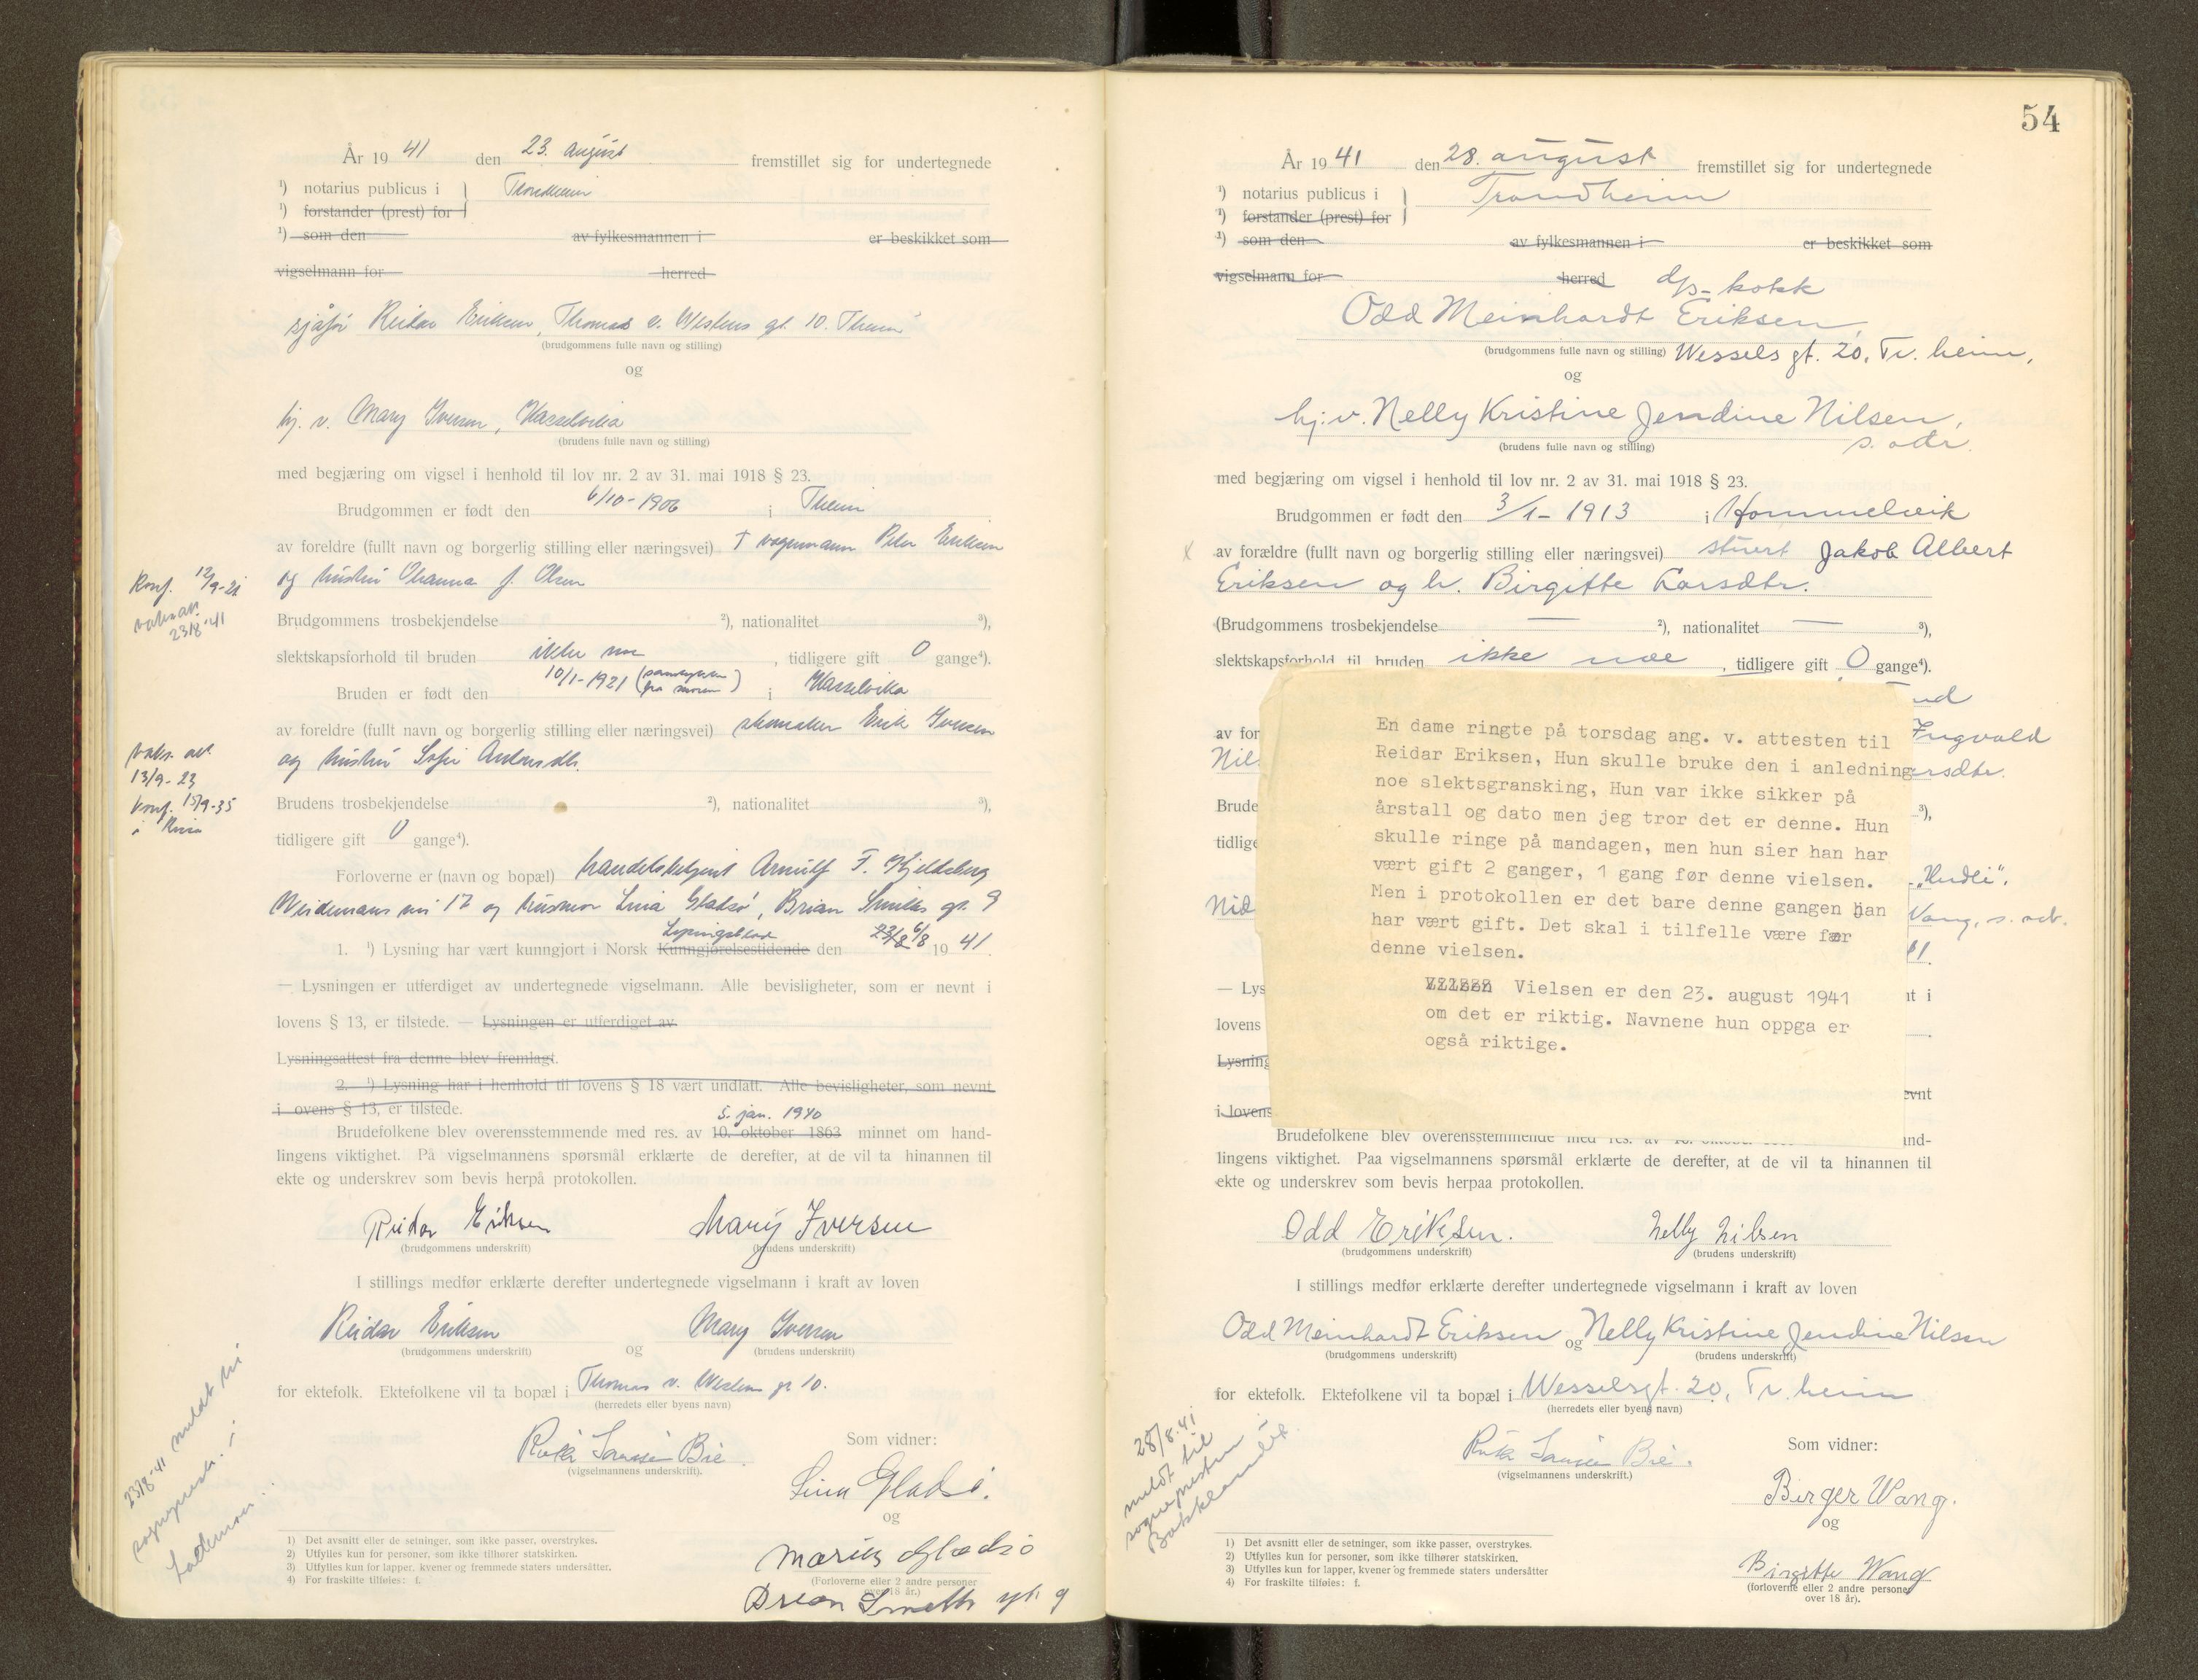 År 1941 den 23. august fremstillet sig for undertegnede
¹) notarius publicus i } Trondheim
¹) forstander (prest) for
¹) som den av fylkesmannen i er beskikket som
vigselmann for herred
sjåfør Reidar Eriksen, Thomas v. Westens gt. 10. Theim
(brudgommens fulle navn og stilling)
og
hj. v. Mary Iversen, Hasselvika
(brudens fulle navn og stilling)
med begjæring om vigsel i henhold til lov nr. 2 av 31. mai 1918 § 23.
Brudgommen er født den 6/10-1906 i Theim
av foreldre (fullt navn og borgerlig stilling eller næringsvei) † vognmann Peder Eriksen
og hustru Ohanna f. Olsen
Konf. 12/9-21
vaks. att.
23/8-41
Brudgommens trosbekjendelse ²), nationalitet ³),
slektskapsforhold til bruden ikke noe, tidligere gift 0 gange⁴).
Bruden er født den 10/1-1921 (samtykke fra moren) i Hasselvika
av foreldre (fullt navn og borgerlig stilling eller næringsvei) skomaker Erik Iversen
og hustru Sofie
vaks. att.
13/9-23
Konf. 15/9-35
i Rissa
Brudens trosbekjendelse ²), nationalitet ³),
tidligere gift 0 gange⁴).
Forloverne er (navn og bopæl) handelsbetjent Arnulf F. Hjeldsberg
Weidemans vei 17 og husmor Lina Gladsø, Brian Smiths gt. 9
1. ¹) Lysning har vært kunngjort i Norsk Kunngjørelsestidende Lysingsblad den 23/8 6/8 1941.
— Lysningen er utferdiget av undertegnede vigselmann. Alle bevisligheter, som er nevnt i
lovens § 13, er tilstede. — Lysningen er utferdiget av
Lysningsattest fra denne blev fremlagt.
2. ¹) Lysning har i henhold til lovens § 18 vært undlatt. Alle bevisligheter, som nevnt
i ovens § 13, er tilstede.
5. jan. 1940
Brudefolkene blev overensstemmende med res. av 10. oktober 1863 minnet om hand-
lingens viktighet. På vigselmannens spørsmål erklærte de derefter, at de vil ta hinannen til
ekte og underskrev som bevis herpå protokollen.
Reidar Eriksen Mary Iversen
(brudgommens underskrift) (brudens underskrift)
I stillings medfør erklærte derefter undertegnede vigselmann i kraft av loven
Reidar Eriksen og Mary Iversen
(brudgommens underskrift) (brudens underskrift)
for ektefolk. Ektefolkene vil ta bopæl i Thomas v. Westens gt 10.
(herredets eller byens navn)
Som vidner:
(vigselmannens underskrift).
Lina Gladsø.
og
Marius Gladsø
(Forloverne eller 2 andre personer
over 18 år.)
Brian Smiths gt. 9
23/8-41 meldt til
sogneprest. i
Lademoen
1) Det avsnitt eller de setninger, som ikke passer, overstrykes.
2) Utfylles kun for personer, som ikke tilhører statskirken.
3) Utfylles kun for lapper, kvener og fremmede staters undersåtter.
4) For fraskilte tilføies: f.
54
År 1941 den 28. august fremstillet sig for undertegnede
¹) notarius publicus i } Trondheim
¹) forstander (prest) for
¹) som den av fylkesmannen i er beskikket som
vigselmann for herred
d/s-kokk
Odd Meinhardt Eriksen,
(brudgommens fulle navn og stilling) Wessels gt. 20, Tr. heim,
og
hj. v. Nelly Kristine Jendine Nilsen,
(brudens fulle navn og stilling) s. adr.
med begjæring om vigsel i henhold til lov nr. 2 av 31. mai 1918 § 23.
Brudgommen er født den 3/1-1913 i Hommelvik
x av forældre (fullt navn og borgerlig stilling eller næringsvei) stuert Jakob Albert
Eriksen og h. Birgitte Larsdtr.
(Brudgommens trosbekjendelse — ²), nationalitet — ³),
slektskapsforhold til bruden ikke noe, tidligere gift 0 gange⁴).
av for Ingvald
Nil
Brude ³),
tidlige
„Hudli".
Nid Vang, s. adr.
— Lys nt i
lovens
Lysning
evnt
i lovens
En dame ringte på torsdag ang. v. attesten til
Reidar Eriksen, Hun skulle bruke den i anledning
noe slektsgransking, Hun var ikke sikker på
årstall og dato men jeg tror det er denne. Hun
skulle ringe på mandagen, men hun sier han har
vært gift 2 ganger, 1 gang før denne vielsen.
Men i protokollen er det bare denne gangen han
har vært gift. Det skal i tilfelle være før
denne vielsen.
Vielsen er den 23. august 1941
om det er riktig. Navnene hun oppga er
også riktige.
Brudefolkene blev overensstemmende med res. av and-
lingens viktighet. Paa vigselmannens spørsmål erklærte de derefter, at de vil ta hinannen til
ekte og underskrev som bevis herpaa protokollen.
Odd Eriksen. Nelly Nilsen
(brudgommens underskrift) (brudens underskrift)
I stillings medfør erklærte derefter undertegnede vigselmann i kraft av loven
Odd Meinhardt Eriksen og Nelly Kristine Jendine Nilsen
(brudgommens underskrift) (brudens underskrift)
for ektefolk. Ektefolkene vil ta bopæl i Wesselsgt. 20, Tr. heim
(herredets eller byens navn)
Som vidner:
(vigselmannens underskrift.)
Birger Wang.
og
Birgitte Wang
(forloverne eller 2 andre personer
over 18 år).
28/8.41
meldt til
sognepresten i
Bakklandet
1) Det avsnitt eller de setninger, som ikke passer, overstrykes.
2) Utfylles kun for personer, som ikke tilhører statskirken.
3) Utfylles kun for lapper, kvener og fremmede staters undersåtter
4) For fraskilte tilføies: f.